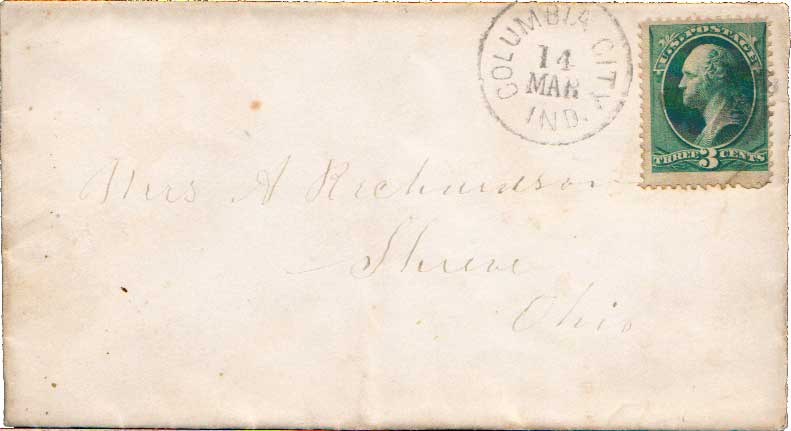 COLUMBIA CITY
14
MAR
IND.
U.S. POSTAGE
THREE 3 CENTS
Mrs A Richardson
Shreve
Ohio